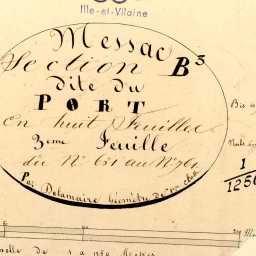 Ille-et-Vilaine
Messac
Section B3
dite du
PORT
en huit Feuilles
3eme Feuille
du N° 631 au N° 761
Par Delamaire Géomètre de
1
1250